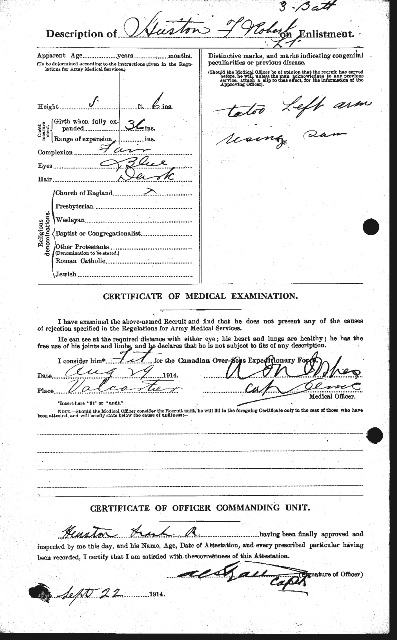 3 - Batt
Description of Huston F Robert on Enlistment.
Apparent Age years months.
(To be determined according to the instructions given in the Regulations for Army Medical Services.)
Height 5 ft. 6 ins.
Chest measurement
Girth when fully expanded 36 ins.
Range of expansion ins.
Complexion Fair
Eyes Blue
Hair Dark
Religious denominations.
Church of England x
Presbyterian
Wesleyan
Baptist or Congregationalist
Other Protestants
(Denomination to be stated.)
Roman Catholic
Jewish
Distinctive marks, and marks indicating congenital peculiarities or previous disease.
(Should the Medical Officer be of opinion that the recruit has served before, he will, unless the man acknowledges to any previous service, attach a slip to that effect, for the information of the Approving Officer).
tatoo Left arm
rising sun
CERTIFICATE OF MEDICAL EXAMINATION.
I have examined the above-named Recruit and find that he does not present any of the causes
of rejection specified in the Regulations for Army Medical Services.
He can see at the required distance with either eye; his heart and lungs are healthy; he has the
free use of his joints and limbs, and he declares that he is not subject to fits of any description.
I consider him* Fit for the Canadian Over-Seas Expeditionary Force.
Date Aug 29 1914.
Place Valcartier
Capt
Medical Officer.
*Insert here "fit" or "unfit."
NOTE.—Should the Medical Officer consider the Recruit unfit, he will fill in the foregoing Certificate only in the case of those who have
been attested, and will briefly state below the cause of unfitness:—
CERTIFICATE OF OFFICER COMMANDING UNIT.
Huston Frank R having been finally approved and
inspected by me this day, and his Name, Age, Date of Attestation, and every prescribed particular having
been recorded, I certify that I am satisfied with the correctness of this Attestation.
Capt (Signature of Officer)
Sept 22 1914.